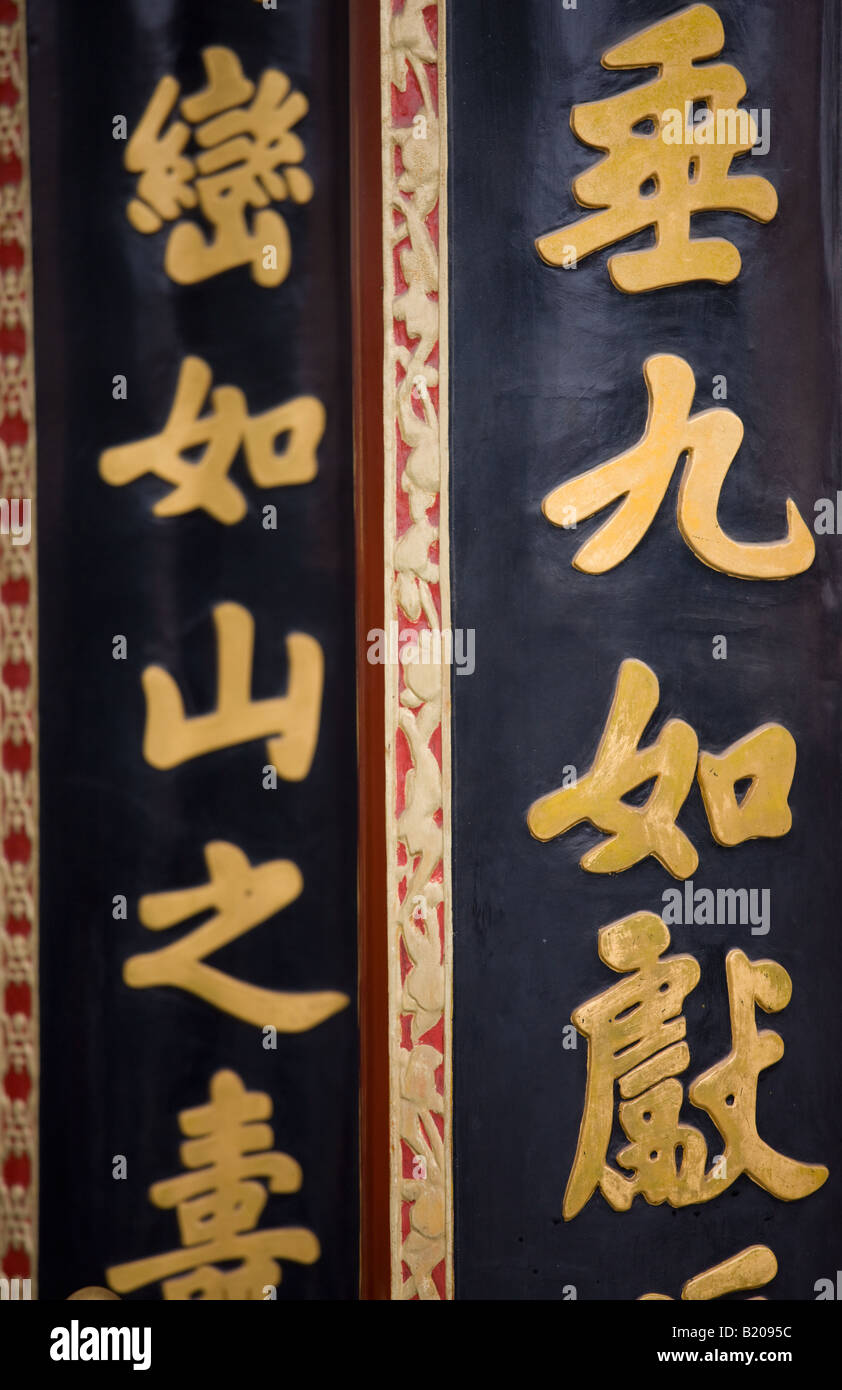 垂九如獻
巒如山之壽
alamy
Image ID: B2095C
www.alamy.com